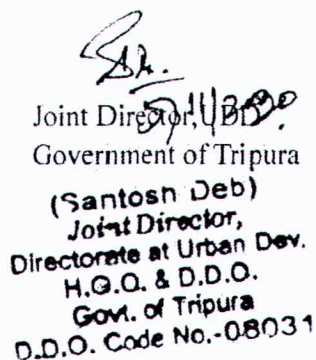 Joint Director, UDD.
Government of Tripura
(Santosh Deb)
Joint Director,
Directorate at Urban Dev.
H.O.O. & D.D.O.
Govt. of Tripura
D.D.O. Code No.-08031